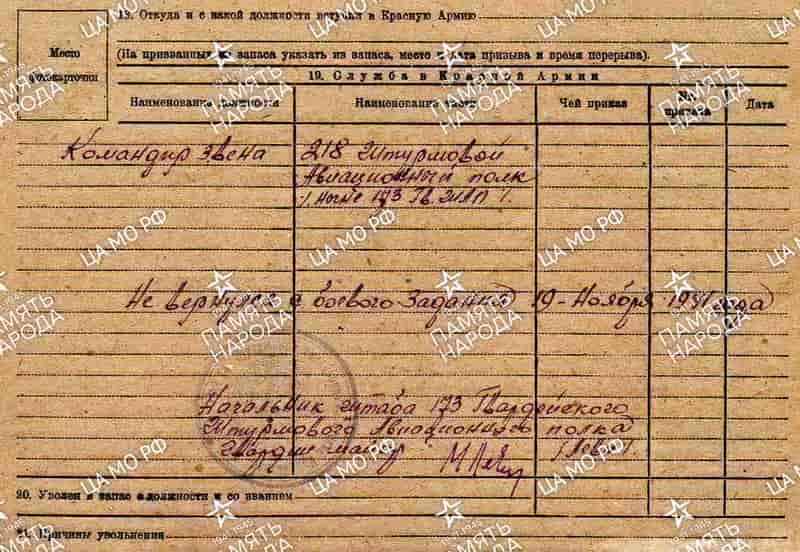 18. Откуда и с какой должности вступил в Красную Армию
Место фотокарточки
(На призванных из запаса указать из запаса, место и дата призыва и время перерыва).
19. Служба в Красной Армии
Наименование должности Наименование части Чей приказ № приказа Дата
Командир звена 218 Штурмовой
Авиационный полк
/ ныне 173 Гв. ШАП /.
Не вернулся с боевого задания 19 - Ноября 1941 года
Начальник штаба 173 Гвардейского
Штурмового Авиационного полка
Гвардии майор /Левин/.
20. Уволен в запас с должности и со званием
21. Причины увольнения
ЦА МО РФ
ПАМЯТЬ НАРОДА